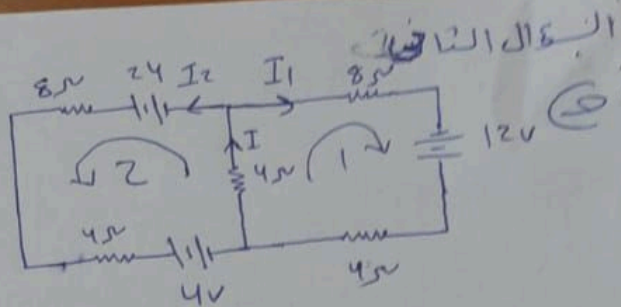 السؤال الثاني
8Ω 24 I2 I1 8Ω
I 4Ω 12v
2 1
4Ω 4v 4Ω